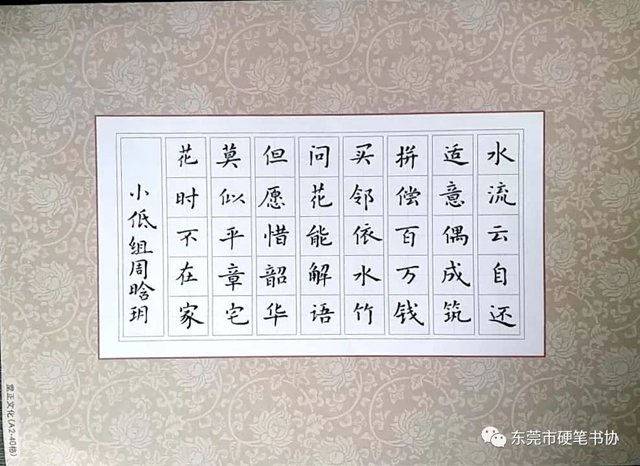 水流云自还
适意偶成筑
拚偿百万钱
买邻依水竹
问花能解语
但愿惜韶华
莫似平章宅
花时不在家
小低组周晗玥
堂正文化(A2-40格)
东莞市硬笔书协